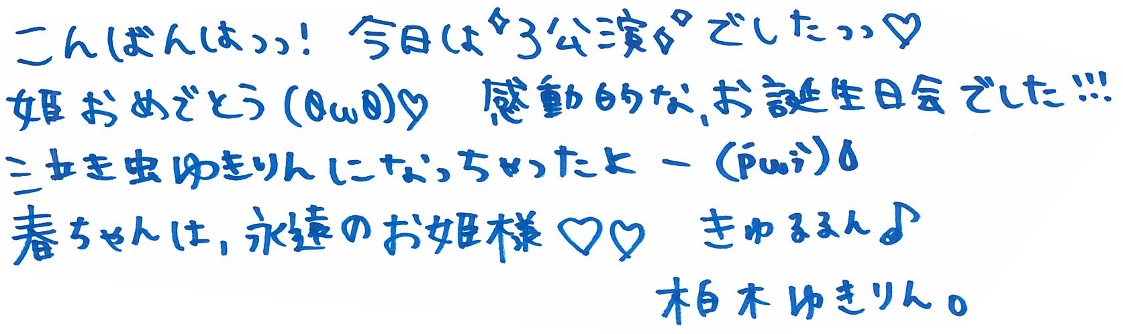 こんばんはっっ! 今日は"3公演"でしたっっ♡
姫おめでとう(θωθ)♡ 感動的な、お誕生日会でした!!!
泣き虫ゆきりんになっちゃったよー(pωq)
春ちゃんは、永遠のお姫様♡♡ きゅるるん♪
柏木ゆきりん。